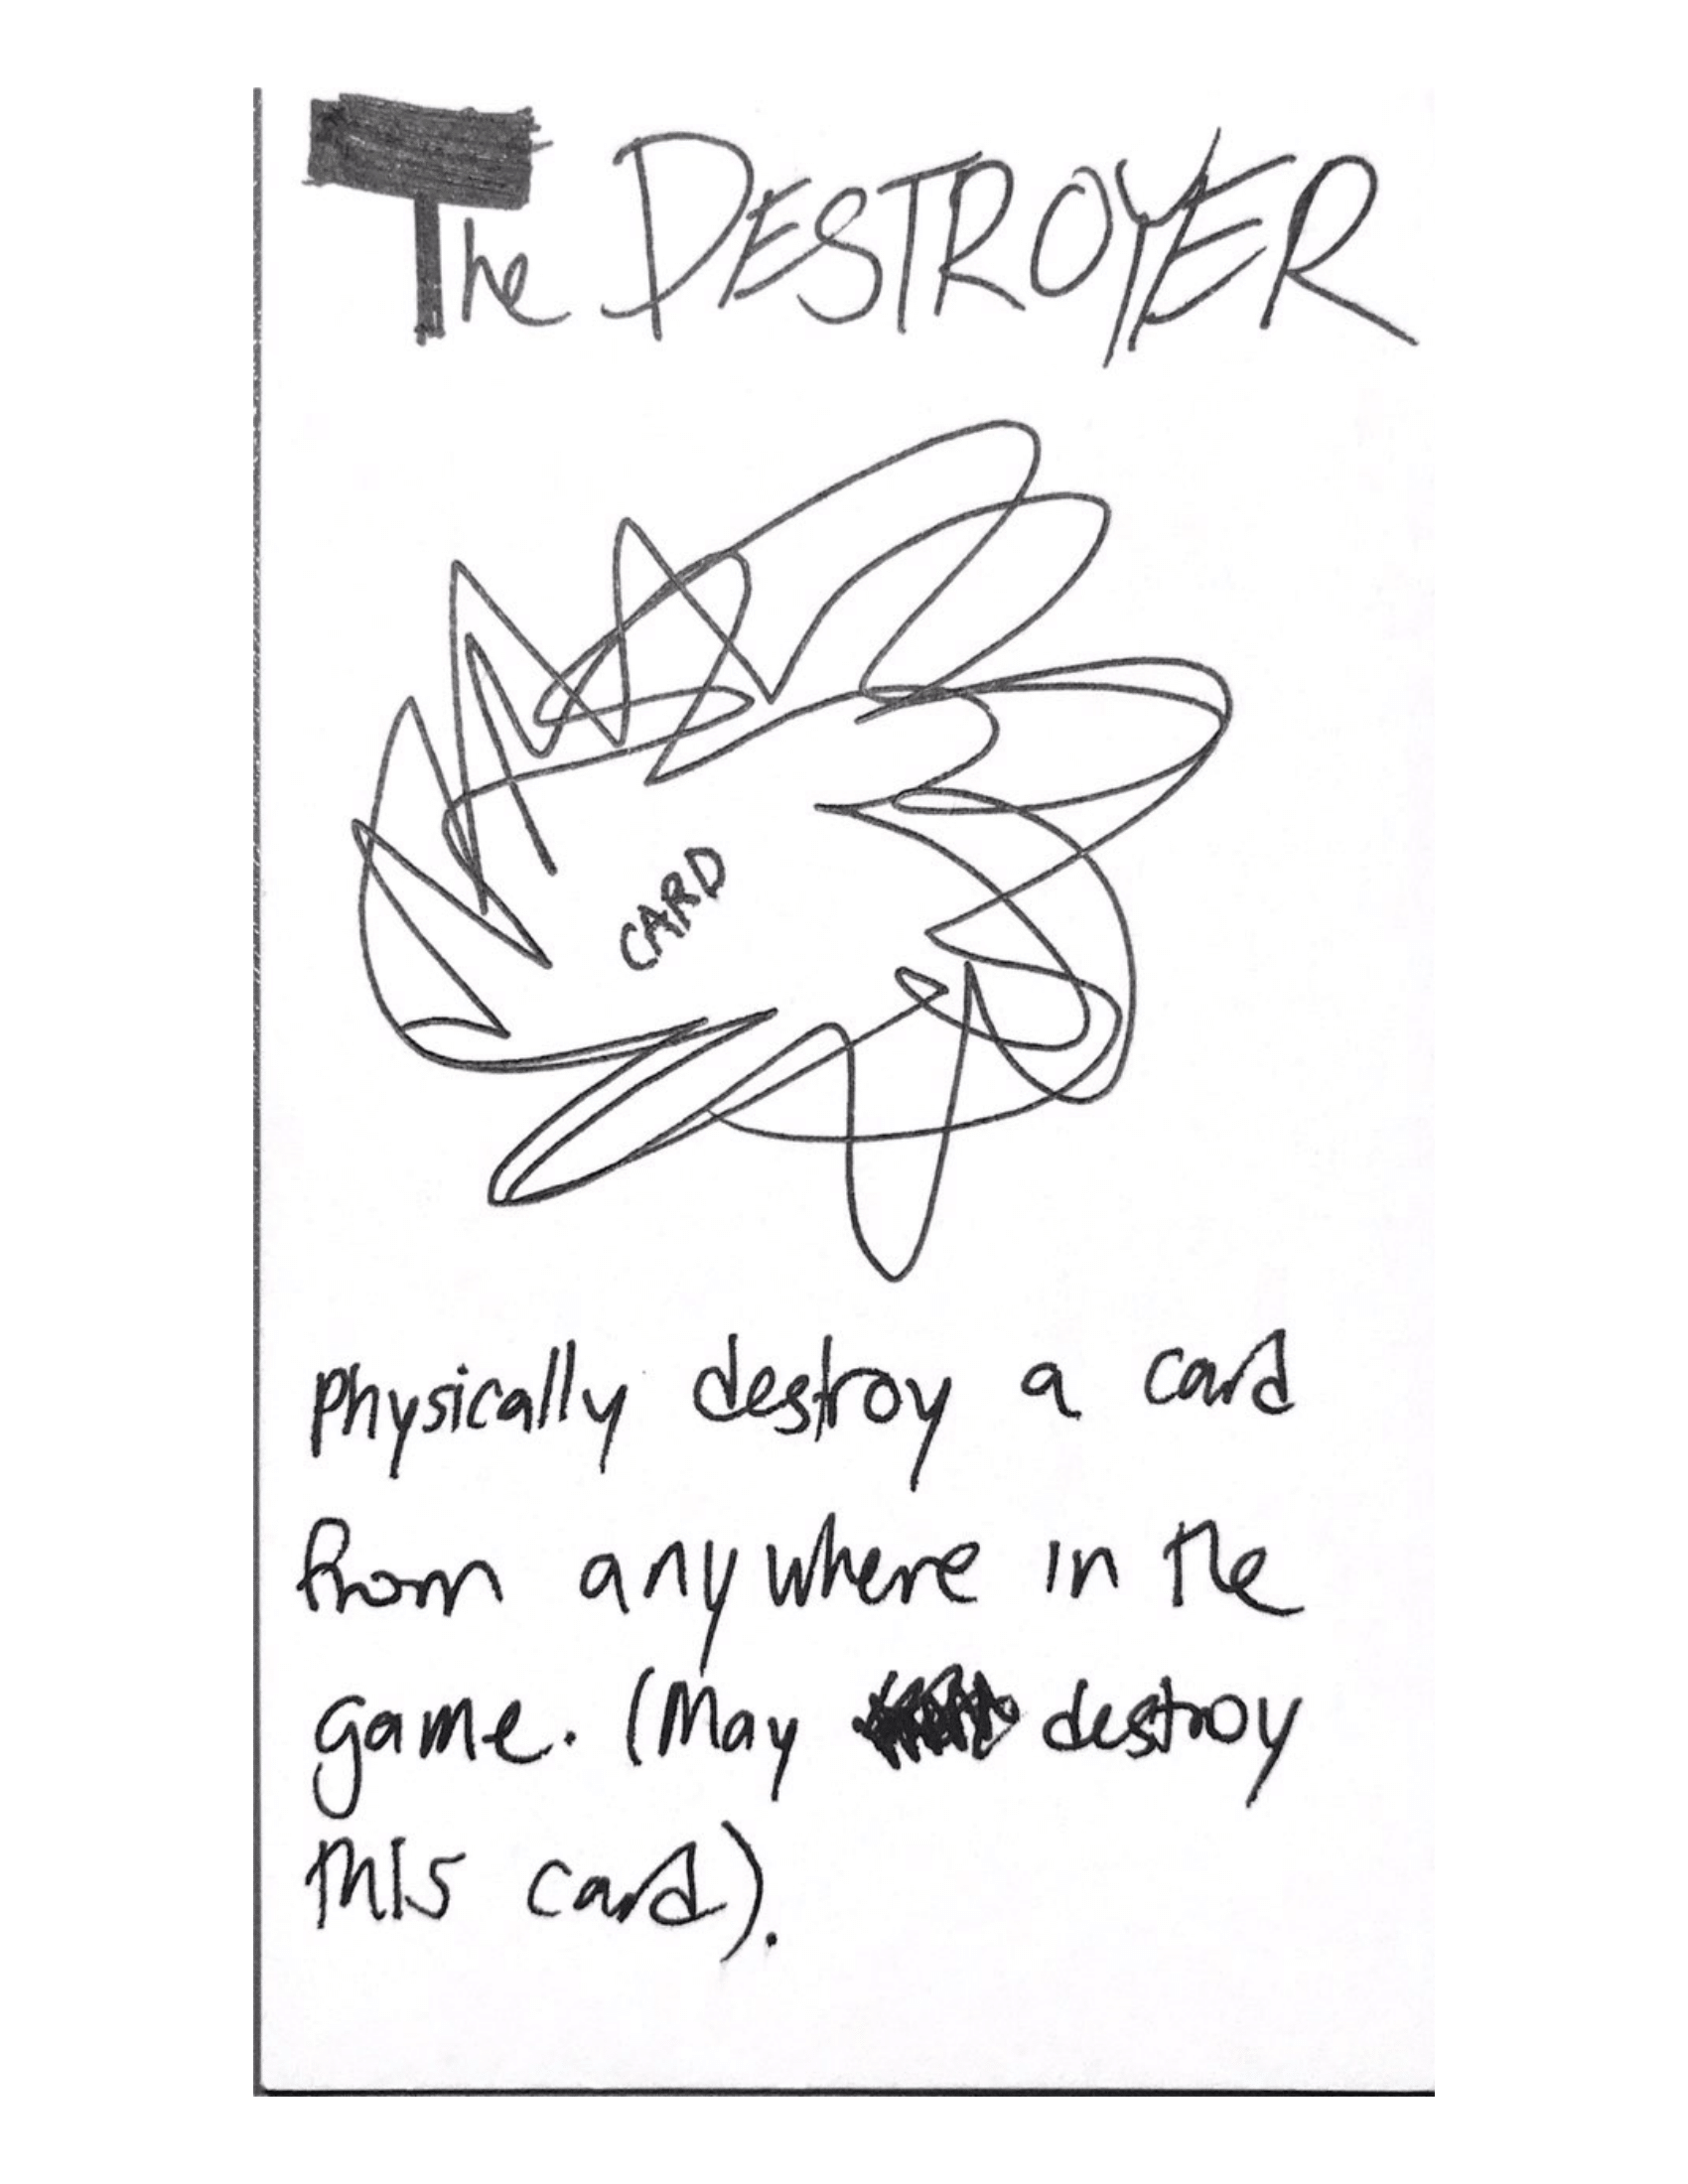 The DESTROYER
CARD
Physically destroy a card
from anywhere in the
game. (May destroy
this card).